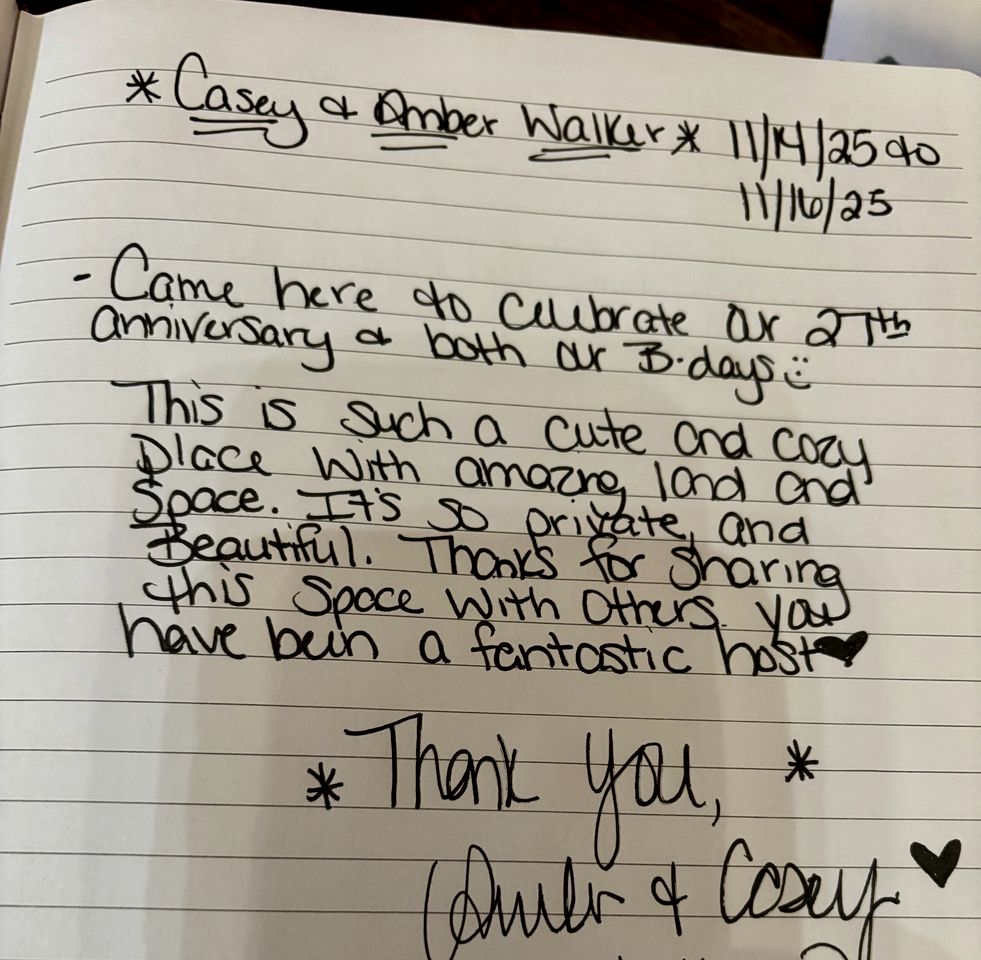 *Casey & Amber Walker* 11/14/25 to
11/16/25
- Came here to celebrate our 27th
anniversary & both our B-days :)
This is such a cute and cozy
place with amazing land and
Space. It's so private, and
Beautiful. Thanks for sharing
this space with others. you
have been a fantastic host♥
* Thank you, *
Amber & Casey ♥